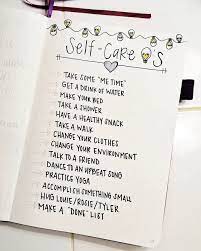 Self-Care
TAKE SOME "ME TIME"
GET A DRINK OF WATER
MAKE YOUR BED
TAKE A SHOWER
HAVE A HEALTHY SNACK
TAKE A WALK
CHANGE YOUR CLOTHES
CHANGE YOUR ENVIRONMENT
TALK TO A FRIEND
DANCE TO AN UPBEAT SONG
PRACTICE YOGA
ACCOMPLISH SOMETHING SMALL
HUG LOUIE/ROSIE/TYLER
MAKE A "DONE" LIST